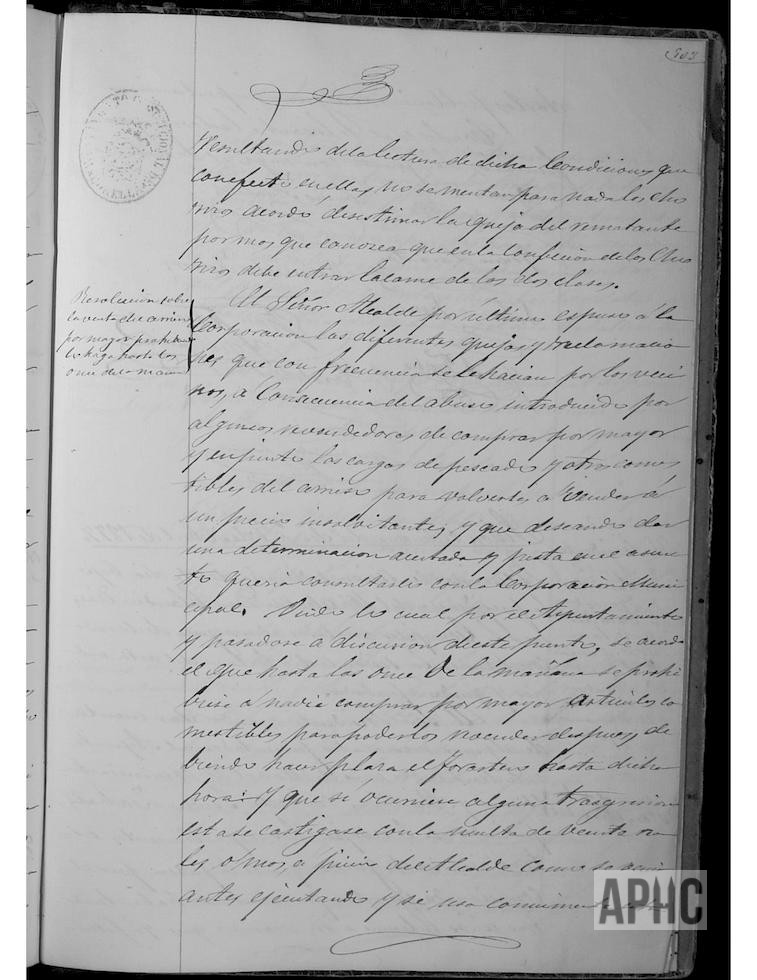 303
3
resultando de la lectura de dicha Condiciones que
con efecto en ellas no se mentan para nada los Cho
rizos acordó desestimar la queja del rematante
por mas que conozca que en la Confeccion de los Cho
rizos debe entrar la carne de las dos clases.
Resolucion sobre
la venta de
por mayor prohibiendo
lo haga hasta las
once de la mañana
El Señor Alcalde por último espuso á la
Corporacion las diferentes quejas y reclamacio
nes que con frecuencia se le hacian por los veci
nos, a Consecuencia del abuso introducido por
algunos revendedores de comprar por mayor
y en junto las cargas de pescado y otros comes
tibles del arriero para volverlos a vender á
un precio y que deseando dar
una determinacion acertada y justa en el asun
to queria consultarlo con la Corporacion Muni
cipal. Oido lo cual por el Ayuntamiento
y pasadose a discusion de este punto, se acordó
el que hasta las once de la mañana se prohi
biese á nadie comprar por mayor articulos co
mestibles para poderlos revender despues, de
biendo hacer plaza el forastero hasta dicha
hora: Y que si ocurriese alguna trasgresion
esta se castigase con la multa de veinte rea
les ó mas, a juicio del Alcalde como se venia
antes ejecutando y se
APHC